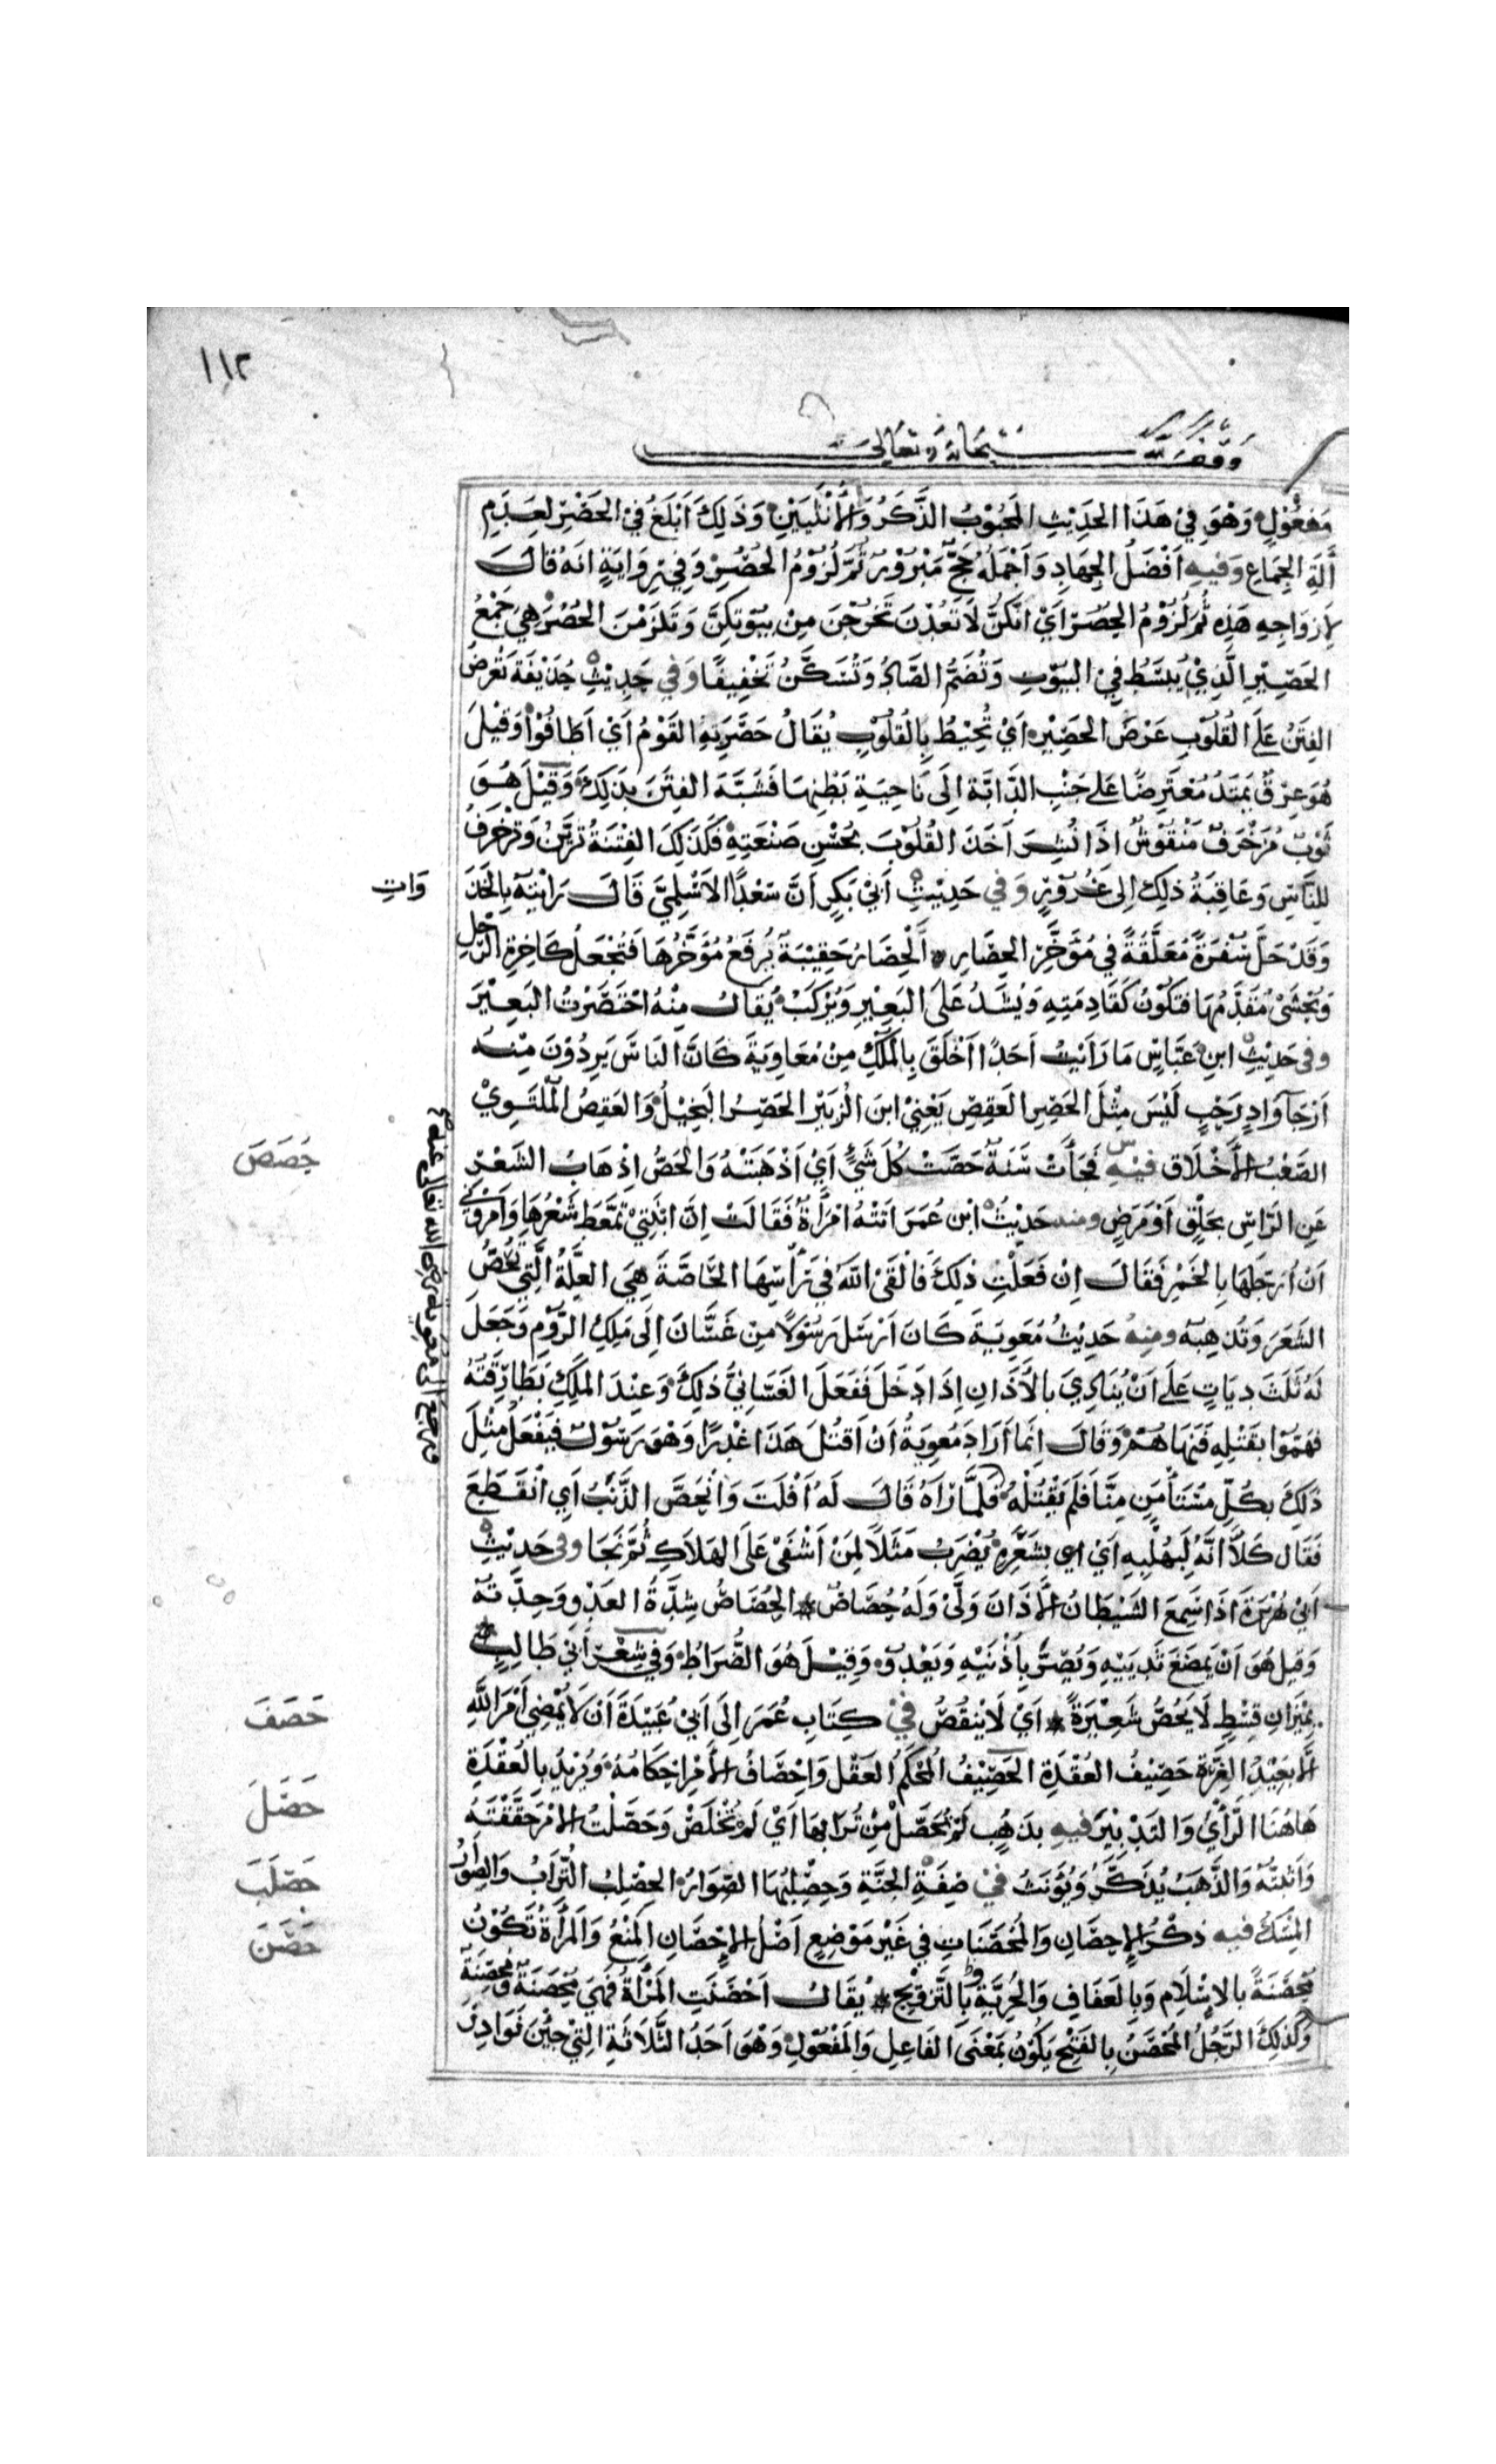 ١١٢
وقف لله سبحانه وتعالى
مَفعُوْلٍ وَهْوَ فِيْ هَذَا الحَدِيْثِ المَجْبُوْبُ الذَّكَرُ وَالأُنْثَيَيْنِ وَذَلِكَ أَبْلَغُ فِيْ الحَصْرِ لِعَدَمِ
أَلَةِ الجِمَاعِ وَفِيهِ أَفْضَلُ الجِهَادِ وَأَجْمَلُهُ حَجٌّ مَبْرُوْرٌ ثُمَّ لُزُوْمُ الحُصُرِ وَفِي رِوَايَةٍ أَنَّهُ قَالَ
لِأَزْوَاجِهِ هَذِهِ ثُمَّ لُزُوْمُ الحُصُرِ أَيْ أَنَّكُنَّ لَا تَعُدْنَ تَخْرُجْنَ مِنْ بُيُوْتِكُنَّ وَتَلْزَمْنَ الحُصُرَ هِيَ جَمْعُ
الحَصِيْرِ الَّذِيْ يُبْسَطُ فِيْ البُيُوْتِ وَتُضَمُّ الصَّادُ وَتُسَكَّنُ تَخْفِيْفًا وَفِي حَدِيْثِ حُذَيْفَةَ تُعْرَضُ
الفِتَنُ عَلَى القُلُوْبِ عَرْضَ الحَصِيْرِ أَيْ تُحِيْطُ بِالقُلُوْبِ يُقَالُ حَصَرَ بِهِ القَوْمُ أَيْ أَطَافُوْا وَقِيْلَ
هُوَ عِرْقٌ يَمْتَدُّ مُعْتَرِضًا عَلَى جَنْبِ الدَّابَّةِ إِلَى نَاحِيَةِ بَطْنِهَا فَشَبَّهَ الفِتَنَ بِذَلِكَ وَقِيْلَ هُوَ
ثَوْبٌ مُزَخْرَفٌ مَنْقُوْشٌ اذَا نُشِرَ أَخَذَ القُلُوْبَ بِحُسْنِ صَنْعَتِهِ فَكَذَلِكَ الفِتْنَةُ تُزَيَّنُ وَتُزَخْرَفُ
لِلنَّاسِ وَعَاقِبَةُ ذلِكَ إِلى غُرُوْرٍ وَفِي حَدِيْثِ أَبِيْ بَكْرٍ أَنَّ سَعْدًا الأَسْلَمِيَّ قَالَ رَأَيْتُهُ بِالخَذَ
وَاتِ
وَقَدْ حَلَّ سُفْرَةً مُعَلَّقَةً فِي مُؤَخَّرِ الحِصَارِ الْحِصَارُ حَقِيْبَةٌ يُرْفَعُ مُؤَخَّرُهَا فَتُجْعَلُ كَاخِرَةِ الرَّحْلِ
وَيُحْشَى مُقَدَّمُهَا فَتَكُوْنُ كَقَادِمَتِهِ وَيُشَدُّ عَلَى البَعِيْرِ وَيُرْكَبُ يُقَالُ مِنْهُ احْتَصَرْتُ البَعِيْرَ
وفي حَدِيْثِ ابنِ عَبَّاسٍ مَا رَأَيْتُ أَحَدًا أَخْلَقَ بِالمُلْكِ مِنْ مُعَاوِيَةَ كَانَ النَّاسُ يَرِدُوْنَ مِنْهُ
أَرْجَآءَ وَادٍ رَحْبٍ لَيْسَ مِثْلَ الحَصِرِ العَقِصِ يَعْنِيْ ابنَ الزُّبَيْرِ الحَصِرُ البَخِيْلُ وَالعَقِصُ المُلْتَوِيْ
حَصَصَ
الصَّعْبُ الأَخْلَاقِ فِيْهِ فَجَاءَتْ سَنَةٌ حَصَّتْ كُلَّ شَيْءٍ أَيْ أَذْهَبَتْهُ وَالحَصُّ إِذْهَابُ الشَّعْرِ
عَنِ الرَّأسِ بِحَلْقٍ أَوْ مَرَضٍ ومنه حَدِيْثُ ابْنِ عُمَرَ أَتَتْهُ امْرَأَةٌ فَقَالَتْ إِنَّ ابْنَتِيْ تَمَعَّطَ شَعْرُهَا وَأَمَرُوْنِي
أَنْ أُرَجِّلَهَا بِالخَمْرِ فَقَالَ إِنْ فَعَلْتِ ذلِكَ فَأَلْقَى اللَّهُ فِي رَأْسِهَا الحَاصَّةَ هِيَ العِلَّةُ الَّتِيْ تَحُصُّ
الشَّعَرَ وَتُذْهِبُهُ ومنهُ حَدِيْثُ مُعَوِيَةَ كَانَ أَرْسَلَ رَسُوْلًا مِنْ غَسَّانَ إِلَى مَلِكِ الرُّوْمِ وَجَعَلَ
لَهُ ثَلَثَ دِيَاتٍ عَلَى أَنْ يُنَادِيَ بِالأَذَانِ إِذَا دَخَلَ فَفَعَلَ الغَسَّانِيُّ ذلِكَ وَعِنْدَ المَلِكِ بَطَارِقَتُهُ
فَهَمُّوْا بِقَتْلِهِ فَنَهَاهُمْ وَقَالَ إِنَّمَا أَرَادَ مُعَوِيَةُ أَنْ أَقْتُلَ هَذَا غَدْرًا وَهْوَ رَسُوْلٌ فَيَفْعَلُ مِثْلَ
ذَلِكَ بِكُلِّ مُسْتَأْمَنٍ مِنَّا فَلَمْ يَقْتُلْهُ فَلَمَّا رَآهُ قَالَ لَهُ أَفْلَتَ وَانْحَصَّ الذَّنَبُ أَيِ انْقَطَعَ
فَقَال كَلَّا انَّهُ لَبِهُلْبِهِ أَيْ اي بِشَعْرِهِ يُضْرَبُ مَثَلًا لِمَنْ أَشْفَى عَلَى الهَلَاكِ ثُمَّ نَجَا وفي حَدِيْثِ
أَبِيْ هُرَيْرَةَ اذَا سَمِعَ الشَّيْطَانُ الأَذَانَ وَلَّى وَلَهُ حُصَاصٌ الحُصَاصُ شِدَّةُ العَدْوِ وَحِدَّتُهُ
وَقِيلَ هُوَ أَنْ يَمْصَعَ بِذَنَبِهِ وَيَصُرَّ بِأُذُنَيْهِ وَيَعْدُو وَقِيْلَ هُوَ الضُّرَاطُ وَفِي شِعْرِ أَبِي طَالِبٍ
حَصَفَ
بِمِيْزَانِ قِسْطٍ لَا يَحُصُّ شَعِيْرَةً أَيْ لَا يَنْقُصُ فِيْ كِتَابِ عُمَرَ إِلَى أَبِيْ عُبَيْدَةَ أَنْ لَا يُمْضِيَ أَمْرَ اللَّهِ
إِلَّا بَعِيْدُ الغِرَّةِ حَصِيْفُ العُقْدَةِ الحَصِيْفُ المُحْكَمُ العَقْلِ وَإِحْصَافُ الأَمْرِ إِحْكَامُهُ وَيُرِيْدُ بِالعُقْدَةِ
حَصَلَ
هَاهُنَا الرَّأْيَ وَالتَدْبِيْرَ فيهِ بِذَهَبٍ لَمْ تُحَصَّلْ مِنْ تُرَابِهَا أَيْ لَمْ تُخَلَّصْ وَحَصَّلْتُ الأَمْرَ حَقَّقْتُهُ
حَصْلَبَ
وَأَثْبَتُّهُ وَالذَّهَبُ يُذَكَّرُ وَيُؤَنَثُ فِيْ صِفَةِ الجَنَّةِ وَحِصْلِبُهَا الصِّوَارُ الحِصْلِبُ التُّرَابُ وَالصِوَارُ
حَصَنَ
المِسْكُ فيه ذِكْرُ الإِحصَانِ وَالمُحْصَنَاتِ فِي غَيْرِ مَوْضِعٍ أَصْلُ الإِحْصَانِ المَنْعُ وَالمَرْأَةُ تَكُوْنُ
مُحْصَنَةً بِالإِسْلَامِ وَبِالعَفَافِ وَالحُرِّيَّةِ وَبِالتَّزْوِيْجِ يُقَالُ أَحْصَنَتِ المَرْأَةُ فَهِيَ مُحْصِنَةٌ وَمُحْصَنَةٌ
وَكَذلِكَ الرَّجُلُ المُحْصَنُ بِالفَتْحِ يَكُوْنُ بِمَعْنَى الفَاعِلِ وَالمَفْعُوْلِ وَهْوَ أَحَدُ الثَّلَاثَةِ الَّتِيْ جِئْنَ نَوَادِرَ